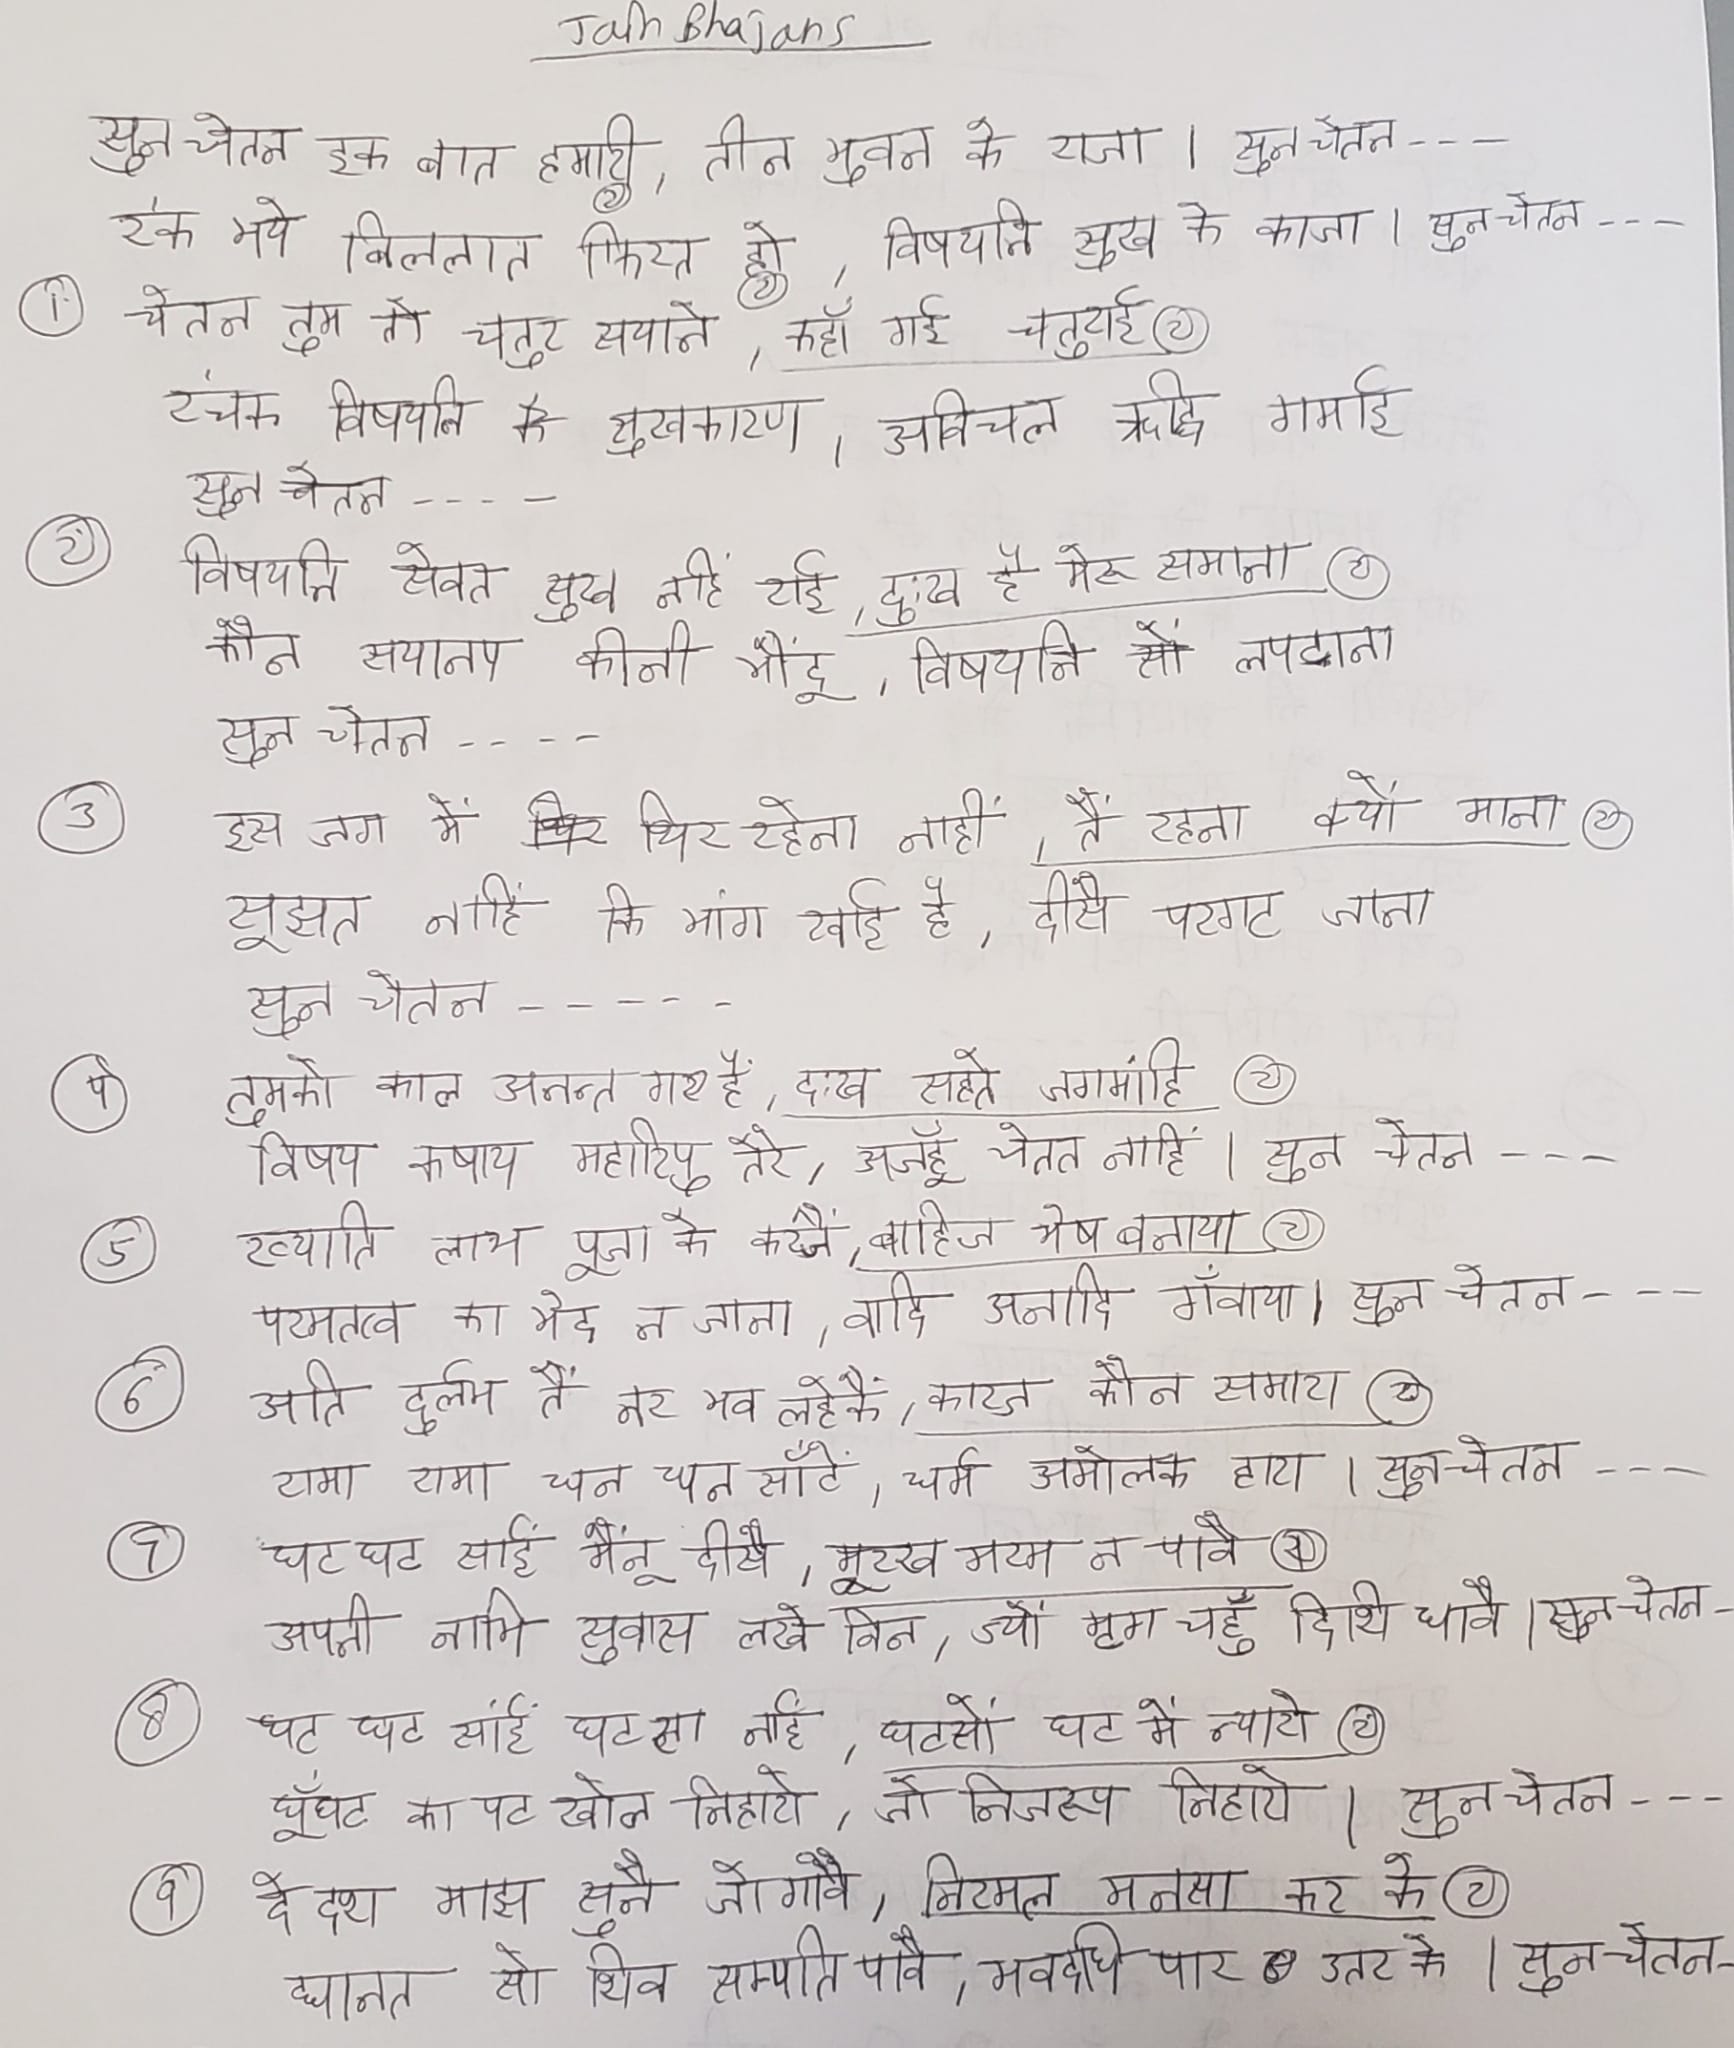 Jain Bhajans
सुन चेतन इक बात हमारी, तीन भुवन के राजा । सुन चेतन ---
②
रंक भये बिललात फिरत हो, विषयनि सुख के काजा । सुन चेतन ---
②
① चेतन तुम तो चतुर सयाने, कहाँ गई चतुराई ②
रंचक विषयनि के सुखकारण, अविचल ऋद्धि गमाई
सुन चेतन ----
② विषयनि सेवत सुख नहिं राई, दुःख है मेरू समाना ②
कौन सयानप कीनी भौंदू, विषयनि सों लपटाना
सुन चेतन ----
③ इस जग में थिर रहेना नाहीं, तैं रहना क्यों माना ②
सूझत नाहिं कि भांग खाई है, दीसै परगट जाना
सुन चेतन -----
④ तुमको काल अनन्त गए हैं, दुःख सहते जगमांहि ②
विषय कषाय महारिपु तेरे, अजहूँ चेतत नाहिं । सुन चेतन ---
⑤ ख्याति लाभ पूजा के काजैं, बाहिज भेष बनाया ②
परमतत्व का भेद न जाना, वादि अनादि गँवाया । सुन चेतन ---
⑥ अति दुर्लभ तैं नर भव लहेकैं, कारज कौन समारा ②
रामा रामा धन धन साँटैं, धर्म अमोलक हारा । सुन चेतन ---
⑦ घट घट सांई मैंनू दीसै, मूरख मरम न पावै ②
अपनी नाभि सुवास लखे बिन, ज्यों मृग चहुँ दिशि धावै । सुन चेतन -
⑧ घट घट सांई घटसा नाहिं, घटसों घट में न्यारो ②
घूँघट का पट खोल निहारो, जो निजरूप निहारो । सुन चेतन ---
⑨ ये दश माझ सुनै जो गावै, निरमल मनसा कर के ②
द्यानत सो शिव सम्पति पावै, भवदधि पार उतर के । सुन चेतन -